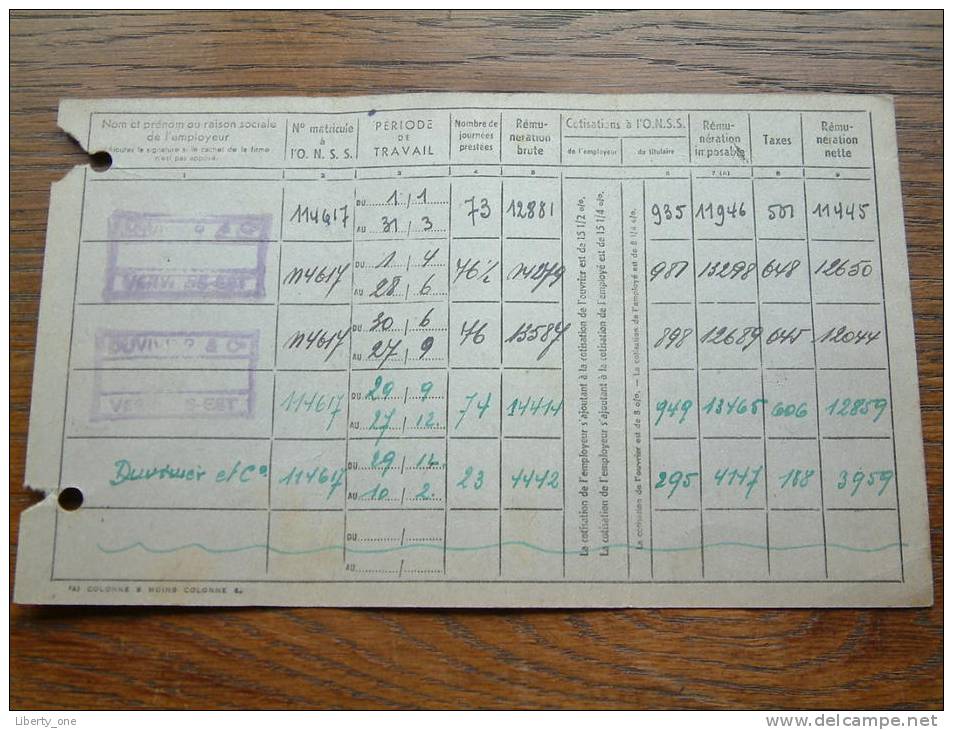 Nom et prénom ou raison sociale de l'employeur
n'est pas apposé.
N° matricule à l'O. N. S. S.
PÉRIODE DE TRAVAIL
Nombre de journées prestées
Rémunération brute
Cotisations à l'O.N.S.S.
de l'employeur
du titulaire
Rémunération imposable
Taxes
Rémunération nette
1 2 3 4 5 6 7 (A) 8 9
114617 DU 1 / 1 AU 31 / 3 73 12881 935 11946 501 11445
114617 DU 1 / 4 AU 28 / 6 76½ 14279 981 13298 648 12650
114617 DU 30 / 6 AU 27 / 9 76 13587 898 12689 645 12044
114617 DU 29 / 9 AU 27 / 12. 74 14414 949 13465 606 12859
114617 DU 29 / 12 AU 10 / 2. 23 4442 295 4147 188 3959
DU / AU /
VERVIERS-EST
VERVIERS-EST
La cotisation de l'employeur s'ajoutant à la cotisation de l'ouvrier est de 15 1/2 o/o.
La cotisation de l'employeur s'ajoutant à la cotisation de l'employé est de 15 1/4 o/o.
La cotisation de l'ouvrier est de 8 o/o. — La cotisation de l'employé est de 8 1/4 o/o.
(A) COLONNE 5 MOINS COLONNE 6.
Liberty_one
www.delcampe.net